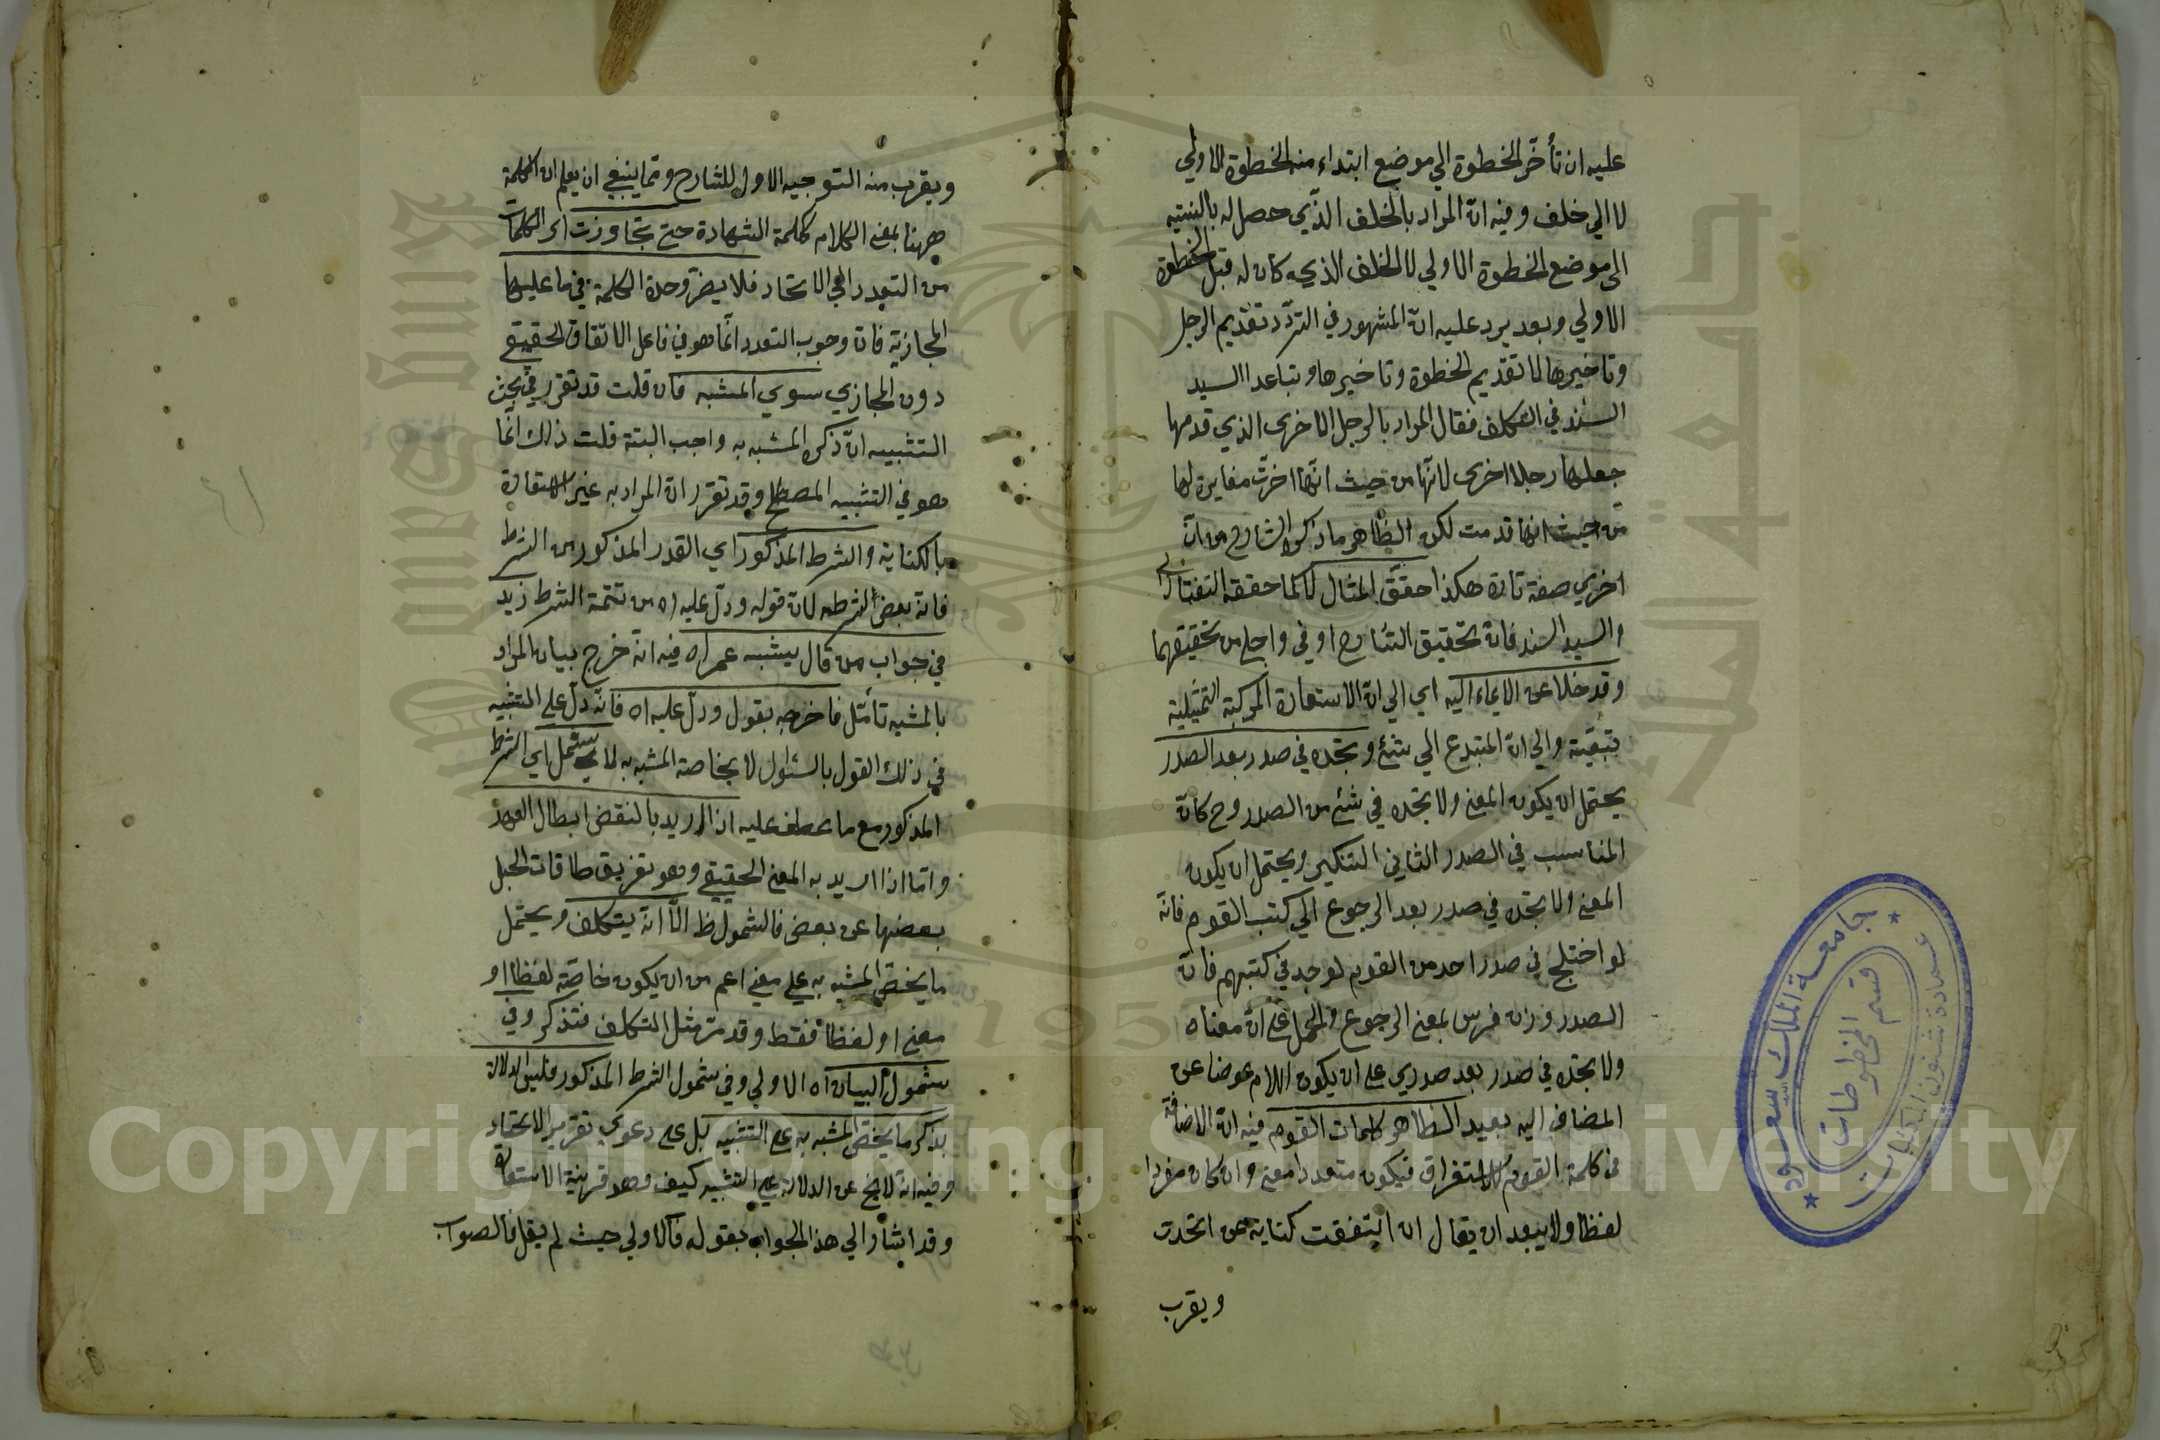 عليه ان تأخر الخطوة الي موضع ابتداء منه الخطوة الاولي
لا الي خلف وفيه انّ المراد بالخلف الذي حصل له بالنسبة
الي موضع الخطوة الاولي لا الخلف الذي كان له قبل الخطوة
الاولي وبعد يرد عليه انّ المشهور في التردّد تقديم الرجل
وتاخيرها لا تقديم الخطوة وتاخيرها وتباعد السيد
السند في التكلف فقال المراد بالرجل الاخرى الذي قدمها
جعلها رجلا اخرى لانّها من حيث انّها اخرت مغايرة لها
من حيث انها قدمت لكن الظاهر ما ذكر الشارح من انّ
اخري صفة تارة هكذا حقّق المثال لا كما حققه التفتازاني
والسيد السند فانّ تحقيق الشارح اوفي واجلي من تحقيقهما
وقد خلا عن الايماء اليه اي الي انّ الاستعارة المركبة التمثيلية
تبعيّة والي انّ المبتدع الي شئ وتجده في صدر بعد الصدر
يحتمل ان يكون المعني ولا تجده في شئ من الصدر وح كان
المناسب في الصدر الثاني التنكير ويحتمل ان يكون
المعني ولا تجده في صدر بعد الرجوع الي كتب القوم فانّه
لو اختلج في صدر احد من القوم لوجد في كتبهم فانّ
الصدر وزان فرس بمعني الرجوع والحمل علي انّ معناه
ولا تجده في صدر بعد صدري علي ان يكون اللام عوضا عن
المضاف اليه بعيد الظاهر كلمات القوم فيه انّ الاضافة
في كلمة القوم للاستغراق فيكون متعددا معني وان كان مفردا
لفظا ولا يبعد ان يقال ان اتفقت كناية عن اتحدت
ويقرب
ويقرب منه التوجيه الاول للشارح وممّا ينبغي ان يعلم ان الكلمة
ههنا بمعني الكلام ككلمة الشهادة حتي تجاوزت اي الكلمات
من التعدد الي الاتحاد فلا يضرّ وحدة الكلمة في ما عليها
المجازية فانّ وجوب التعدد انّما هو في فاعل الاتّفاق الحقيقي
دون المجازي سوي المشبه فان قلت قد تقرر في بحث
التشبيه انّ ذكر المشبه به واجب البتة قلت ذلك انّما
هو في التشبيه المصطلح وقد تقرر انّ المراد به غير الاستعارة
بالكناية والشرط المذكور اي القدر المذكور من الشرط
فانّه بعض الشرط لانّ قوله ودلّ عليه اه من تتمة الشرط زيد
في جواب من قال يشبه عمرا اه فيه انّه خرج ببيان المراد
بالمشبه تأمّل فاخرجه بقول ودلّ عليه اه فانّه دلّ علي التشبيه
في ذلك القول بالسئول لا بخاصة المشبه به لا يشمل اي الشرط
المذكور مع ما عطف عليه اذا اريد بالنقض ابطال العهد
وامّا اذا اريد به المعني الحقيقي وهو تفريق طاقات الحبل
بعضها عن بعض فالشمول ظ الّا انّه يتكلف ويحتمل
ما يختصّ المشبه به علي معني اعم من ان يكون خاصّة لفظا او
معني او لفظا فقط وقد مرّ مثل التكلف فتذكر وفي
شمول البيان اه الاولي وفي شمول الشرط المذكور فليس الدلالة
بذكر ما يختصّ المشبه به علي التشبيه بل علي دعوي تقرير الاتحاد
وفيه انّه لا يخ عن الدلالة علي التشبيه كيف وهو قرينة الاستعارة
وقد اشار الي هذا الجواب بقوله فالاولي حيث لم يقل فالصواب
جامعة الملك سعود
عمادة شئون المكتبات
قسم المخطوطات
Copyright © King Saud University
1957